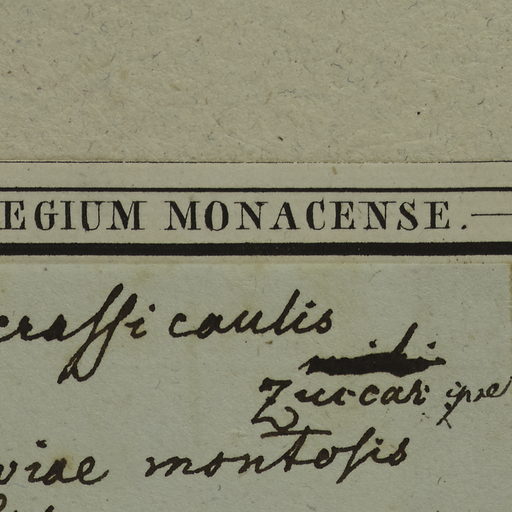 EGIUM MONACENSE.
crassicaulis
mihi
Zuccar ipse
viae montosis